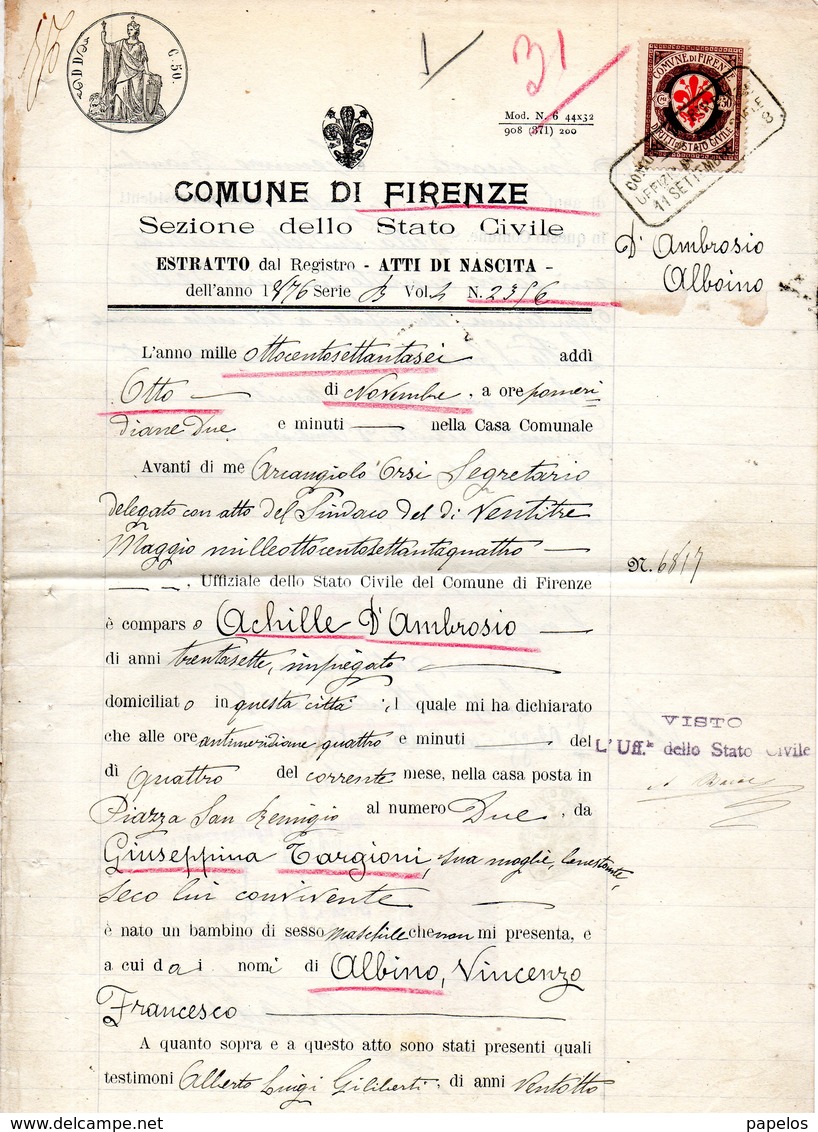 C. 50.
31
Mod. N. 6 44x32
908 (371) 200
COMVNE DI FIRENZE
50
DIRITTI DI STATO CIVILE
11 SETTEMB
COMUNE DI FIRENZE
Sezione dello Stato Civile
ESTRATTO dal Registro - ATTI DI NASCITA -
dell'anno 1876 Serie B Vol. 4 N. 2356
D'Ambrosio
Alboino
L'anno mille ottocentosettantasei addì
Otto — di Novembre, a ore pomeri
diane Due e minuti — nella Casa Comunale
Avanti di me Arcangiolo Orsi Segretario
delegato con atto del Sindaco del dì Ventitre
Maggio milleottocentosettantaquattro —
— —, Uffiziale dello Stato Civile del Comune di Firenze
N. 6817
è compars o Achille D'Ambrosio —
di anni trentasette, impiegato —
domiciliat o in questa città, il quale mi ha dichiarato
che alle ore antimeridiane quattro e minuti — del
VISTO
L'Uff.le dello Stato Civile
dì quattro del corrente mese, nella casa posta in
Piazza San Remigio al numero Due, da
Giuseppina Targioni, sua moglie, benestante,
seco lui convivente —
è nato un bambino di sesso maschile che non mi presenta, e
a cui dà i nomi di Albino, Vincenzo
Francesco —
A quanto sopra e a questo atto sono stati presenti quali
testimoni Alberto Luigi Giliberti, di anni Ventotto
papelos